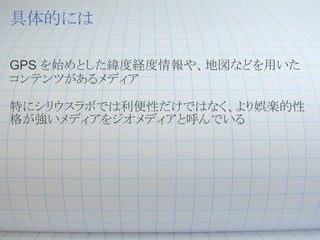 具体的には
GPSを始めとした緯度経度情報や、地図などを用いた
コンテンツがあるメディア
特にシリウスラボでは利便性だけではなく、より娯楽的性
格が強いメディアをジオメディアと呼んでいる